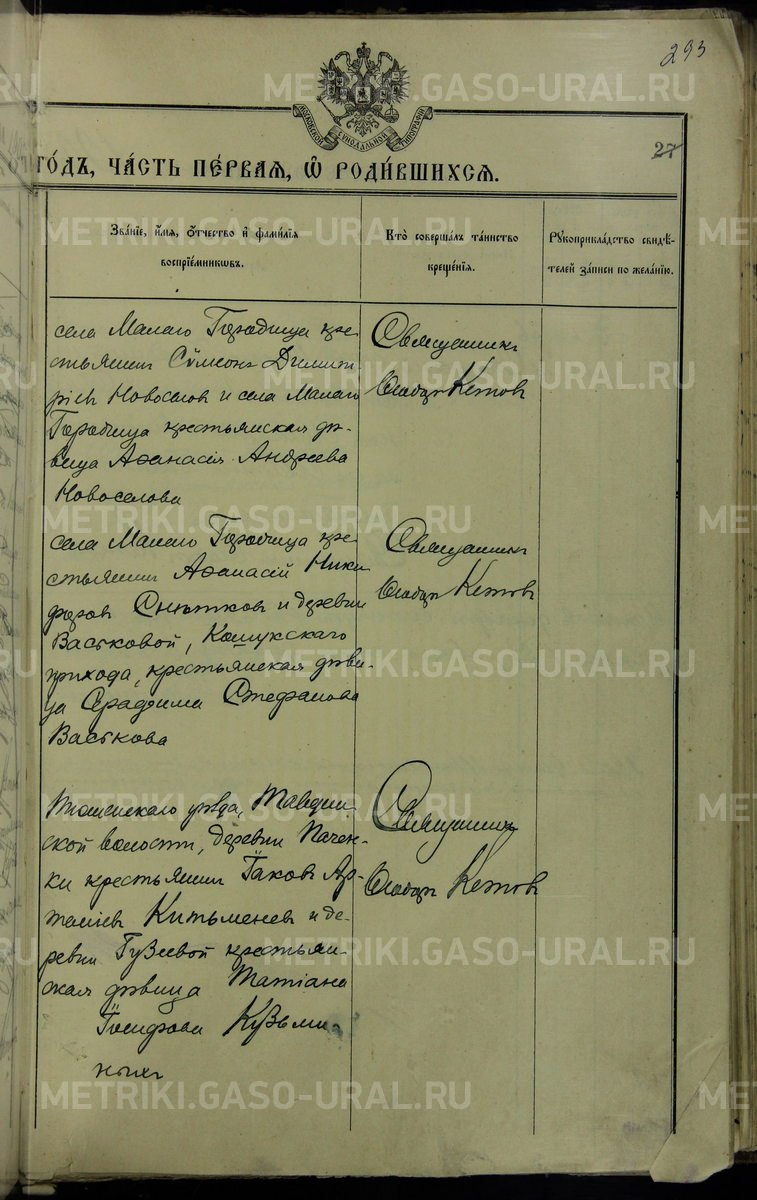 293
МОСКОВСКОЙ СИНОДАЛЬНОЙ ТИПОГРАФІИ
27
ГО́ДЪ, ЧА́СТЬ ПЕ́РВАѦ, Ѡ҆ РОДИ́ВШИХСѦ.
Зва́нїе, и҆́мѧ, ѻ҆́тчество и҆ фами́лїѧ
воспрїе́мникѡвъ.
Кто̀ соверша́лъ та́инство
креще́нїѧ.
Рꙋкоприкла́дство свидѣ́-
телей за́писи по жела́нїю.
села Малаго Городища кре-
стьянинъ Сѵмеонъ Димит
ріевъ Новоселовъ и села Малаго
Городища крестьянская дѣ-
вица Аѳанасія Андреева
Новоселова
Священникъ
Кетовъ
села Малаго Городища кре-
стьянинъ Аѳанасій Ники
форовъ Снѣтковъ и деревни
Васьковой, Кошукскаго
прихода, крестьянская дѣви-
ца Серафима Стефанова
Васькова
Священникъ
Кетовъ
уѣзда, Тавдин-
ской волости, деревни Пачен-
ки крестьянинъ Іаковъ Ар-
темьевъ Китьменевъ и де-
ревни Гузеевой крестьян-
ская дѣвица Татіана
Іосифова Кузьми-
ныхъ
Священникъ
Кетовъ
METRIKI.GASO-URAL.RU